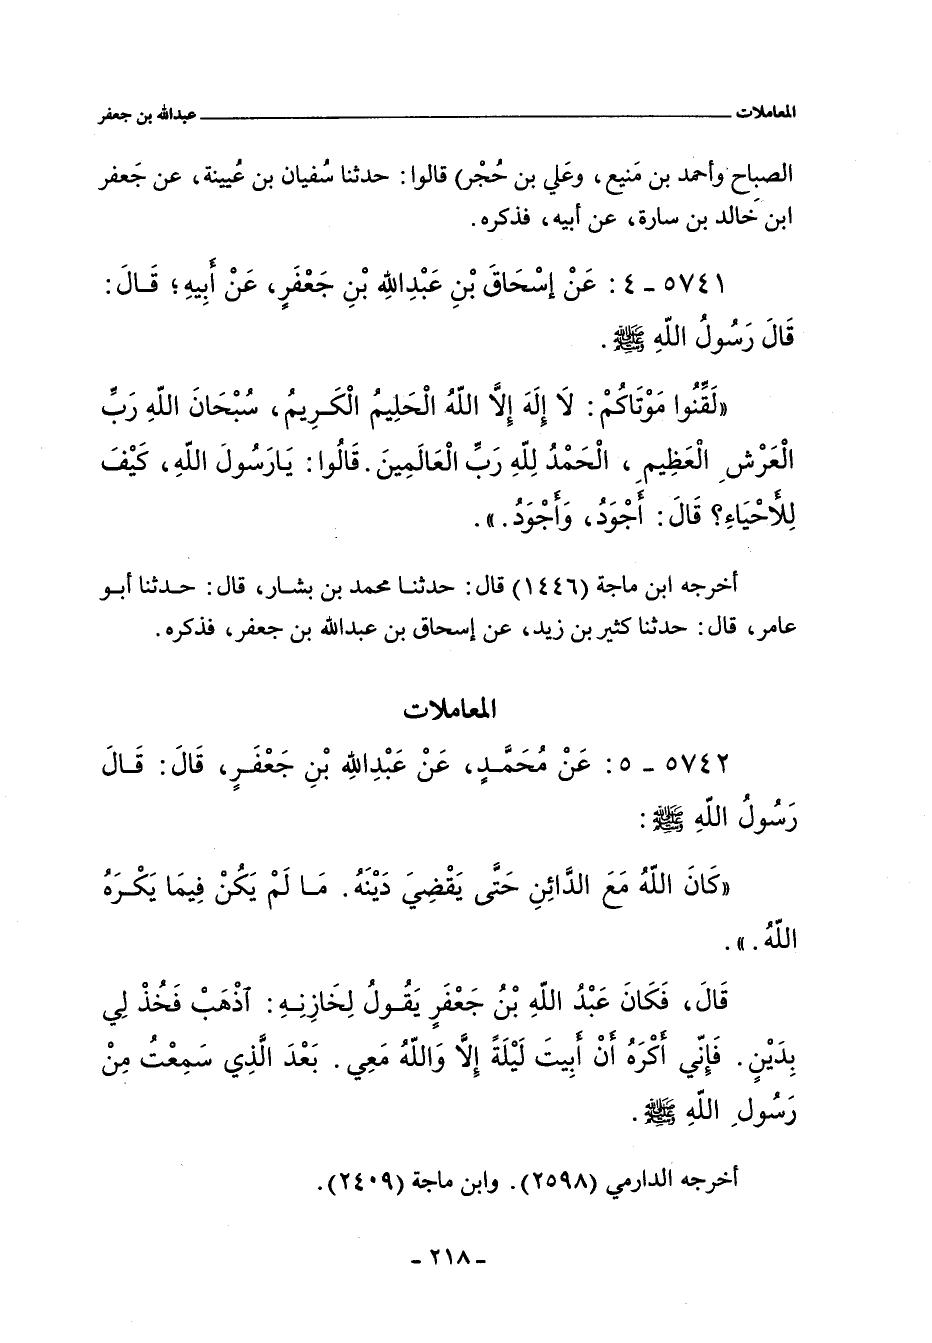 المعاملات ــــــــــــــــــــــــــــــــ عبدالله بن جعفر
الصباح وأحمد بن مَنيع، وعَلي بن حُجْر) قالوا: حدثنا سُفيان بن عُيينة، عن جَعفر
ابن خالد بن سارة، عن أبيه، فذكره.
٥٧٤١ - ٤: عَنْ إِسْحَاقَ بْنِ عَبْدِاللهِ بْنِ جَعْفَرٍ، عَنْ أَبِيهِ؛ قَالَ:
قَالَ رَسُولُ اللّهِ ﷺ.
«لَقِّنُوا مَوْتَاكُمْ: لَا إِلَهَ إِلَّا اللّهُ الْحَلِيمُ الْكَرِيمُ، سُبْحَانَ اللّهِ رَبِّ
الْعَرْشِ الْعَظِيمِ، الْحَمْدُ لِلّهِ رَبِّ الْعَالَمِينَ. قَالُوا: يَارَسُولَ اللّهِ، كَيْفَ
لِلْأَحْيَاءِ؟ قَالَ: أَجْوَدُ، وَأَجْوَدُ.».
أخرجه ابن ماجة (١٤٤٦) قال: حدثنا محمد بن بشار، قال: حدثنا أبو
عامر، قال: حدثنا كثير بن زيد، عن إسحاق بن عبدالله بن جعفر، فذكره.
المعاملات
٥٧٤٢ - ٥: عَنْ مُحَمَّدٍ، عَنْ عَبْدِاللهِ بْنِ جَعْفَرٍ، قَالَ: قَالَ
رَسُولُ اللّهِ ﷺ:
«كَانَ اللّهُ مَعَ الدَّائِنِ حَتَّى يَقْضِيَ دَيْنَهُ. مَا لَمْ يَكُنْ فِيمَا يَكْرَهُ
اللّهُ.».
قَالَ، فَكَانَ عَبْدُ اللّهِ بْنُ جَعْفَرٍ يَقُولُ لِخَازِنِهِ: آذْهَبْ فَخُذْ لِي
بِدَيْنٍ. فَإِنِّي أَكْرَهُ أَنْ أَبِيتَ لَيْلَةً إِلَّا وَاللّهُ مَعِي. بَعْدَ الَّذِي سَمِعْتُ مِنْ
رَسُولِ اللّهِ ﷺ.
أخرجه الدارمي (٢٥٩٨). وابن ماجة (٢٤٠٩).
- ٢١٨ -